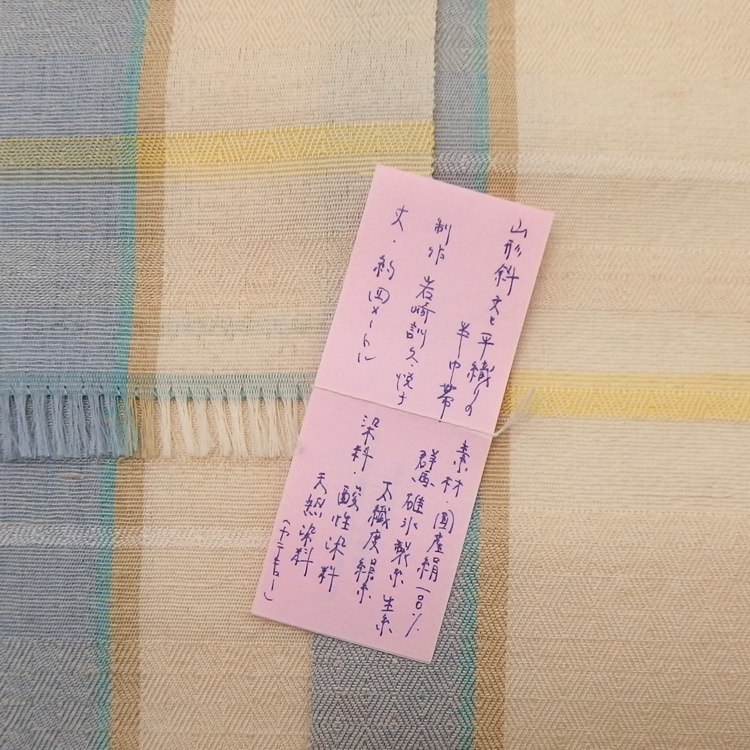 山形斜文と平織りの
半巾帯
制作 岩崎訓久・悦子
丈・約四メートル
素材・國産絹一〇〇%
群馬碓氷製糸生糸
太繊度絹糸
染料 酸性染料
天然染料